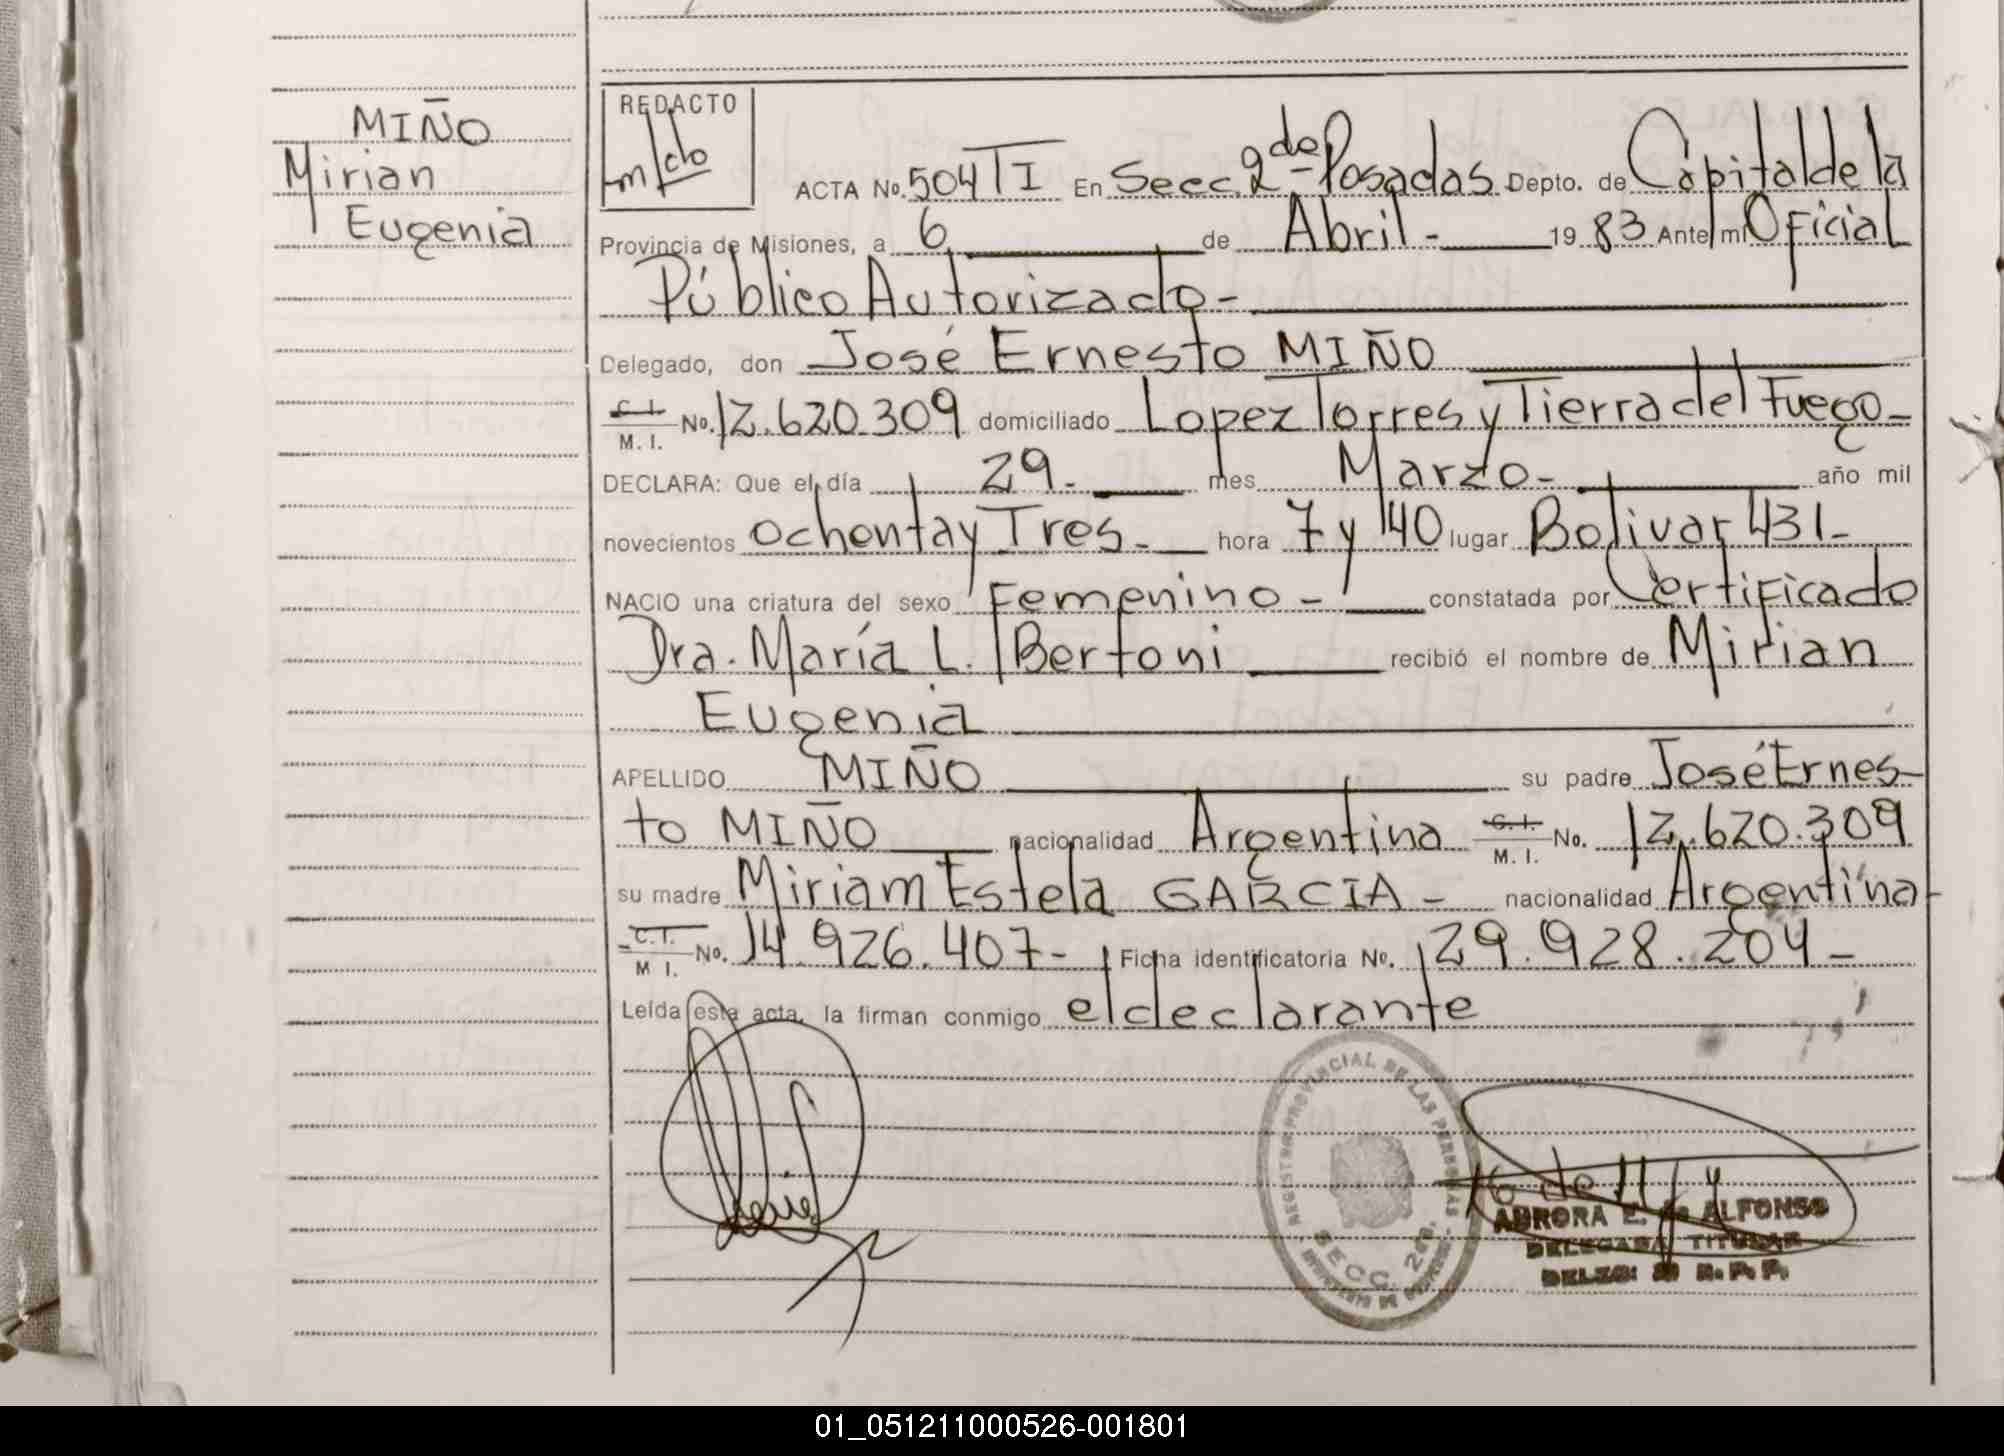 MIÑO
Mirian
Eugenia
REDACTO
ACTA No. 504 TI En Secc. 2da Posadas Depto. de Capital de la
Provincia de Misiones, a 6 de Abril - 19 83 Ante mi Oficial
Público Autorizado -
Delegado, don José Ernesto MIÑO
C.I. M. I. No. 12.620.309 domiciliado Lopez Torres y Tierra del Fuego -
DECLARA: Que el día 29 - mes Marzo - año mil
novecientos ochenta y Tres - hora 7 y 40 lugar Bolivar 431 -
NACIO una criatura del sexo Femenino - constatada por Certificado
Dra. María L. Bertoni recibió el nombre de Mirian
Eugenia
APELLIDO MIÑO su padre José Ernes-
to MIÑO nacionalidad Argentina C.I. M. I. No. 12.620.309
su madre Miriam Estela GARCIA - nacionalidad Argentina -
C.I. M I. No. 14.926.407 - Ficha identificatoria No. 29.928.204 -
Leída esta acta, la firman conmigo el declarante
REGISTRO PROVINCIAL DE LAS PERSONAS
SECC. 2da.
AURORA E. de ALFONSO
DELEGADA TITULAR
R. P. P.
01_051211000526-001801